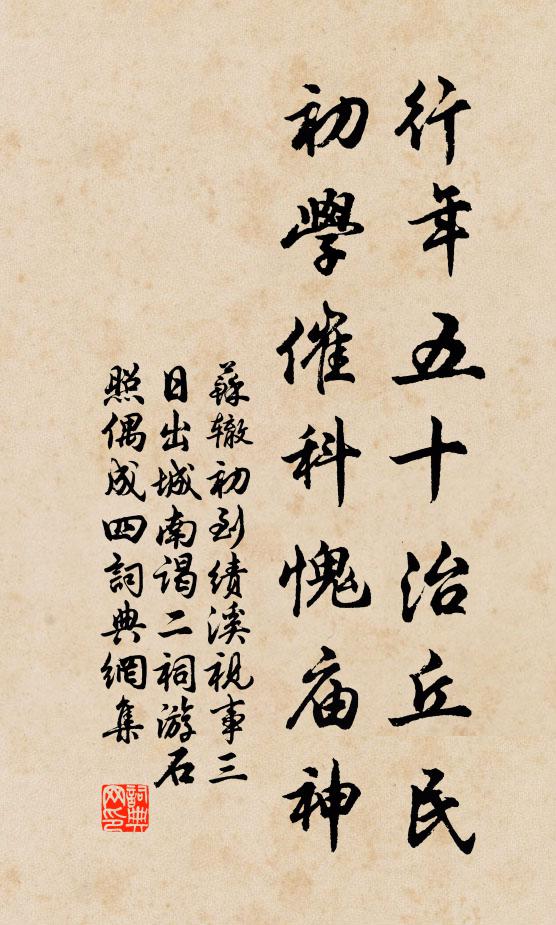 行年五十治丘民
初學催科愧庙神
蘇辙初到績溪視事三
日出城南谒二祠游石
照偶成四詞典網集
詞典
网印